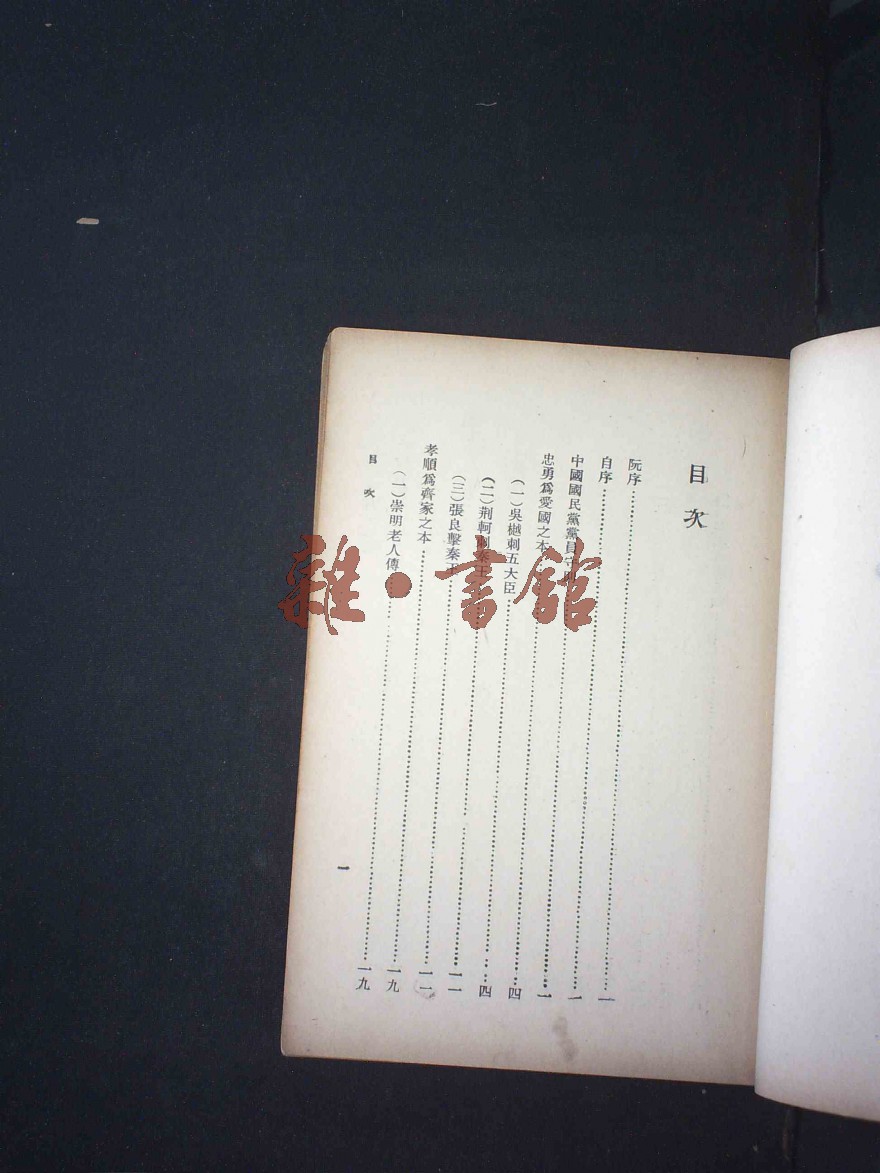 目次
阮序……一
自序……一
中國國民黨黨員守則……一
忠勇爲愛國之本……四
(一)吳樾刺五大臣……四
(二)荆軻刺秦王……一一
(三)張良擊秦王……一一
孝順爲齊家之本……一九
(一)崇明老人傳……一九
目次
一
雜·書館